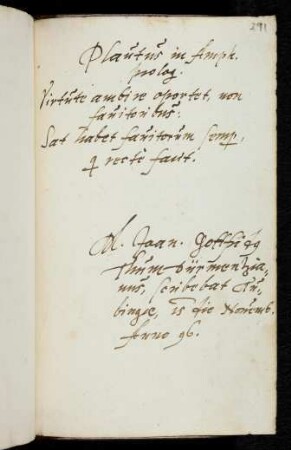 291
Plautus in Amph.
prolog.
Virtute ambire oportet, non
favitoribus:
Sat habet favitorum semp.
q recte facit.
M. Joan.
Thum
nus, scribebat Tu-
bingae, 15 die Novemb.
Anno 96.